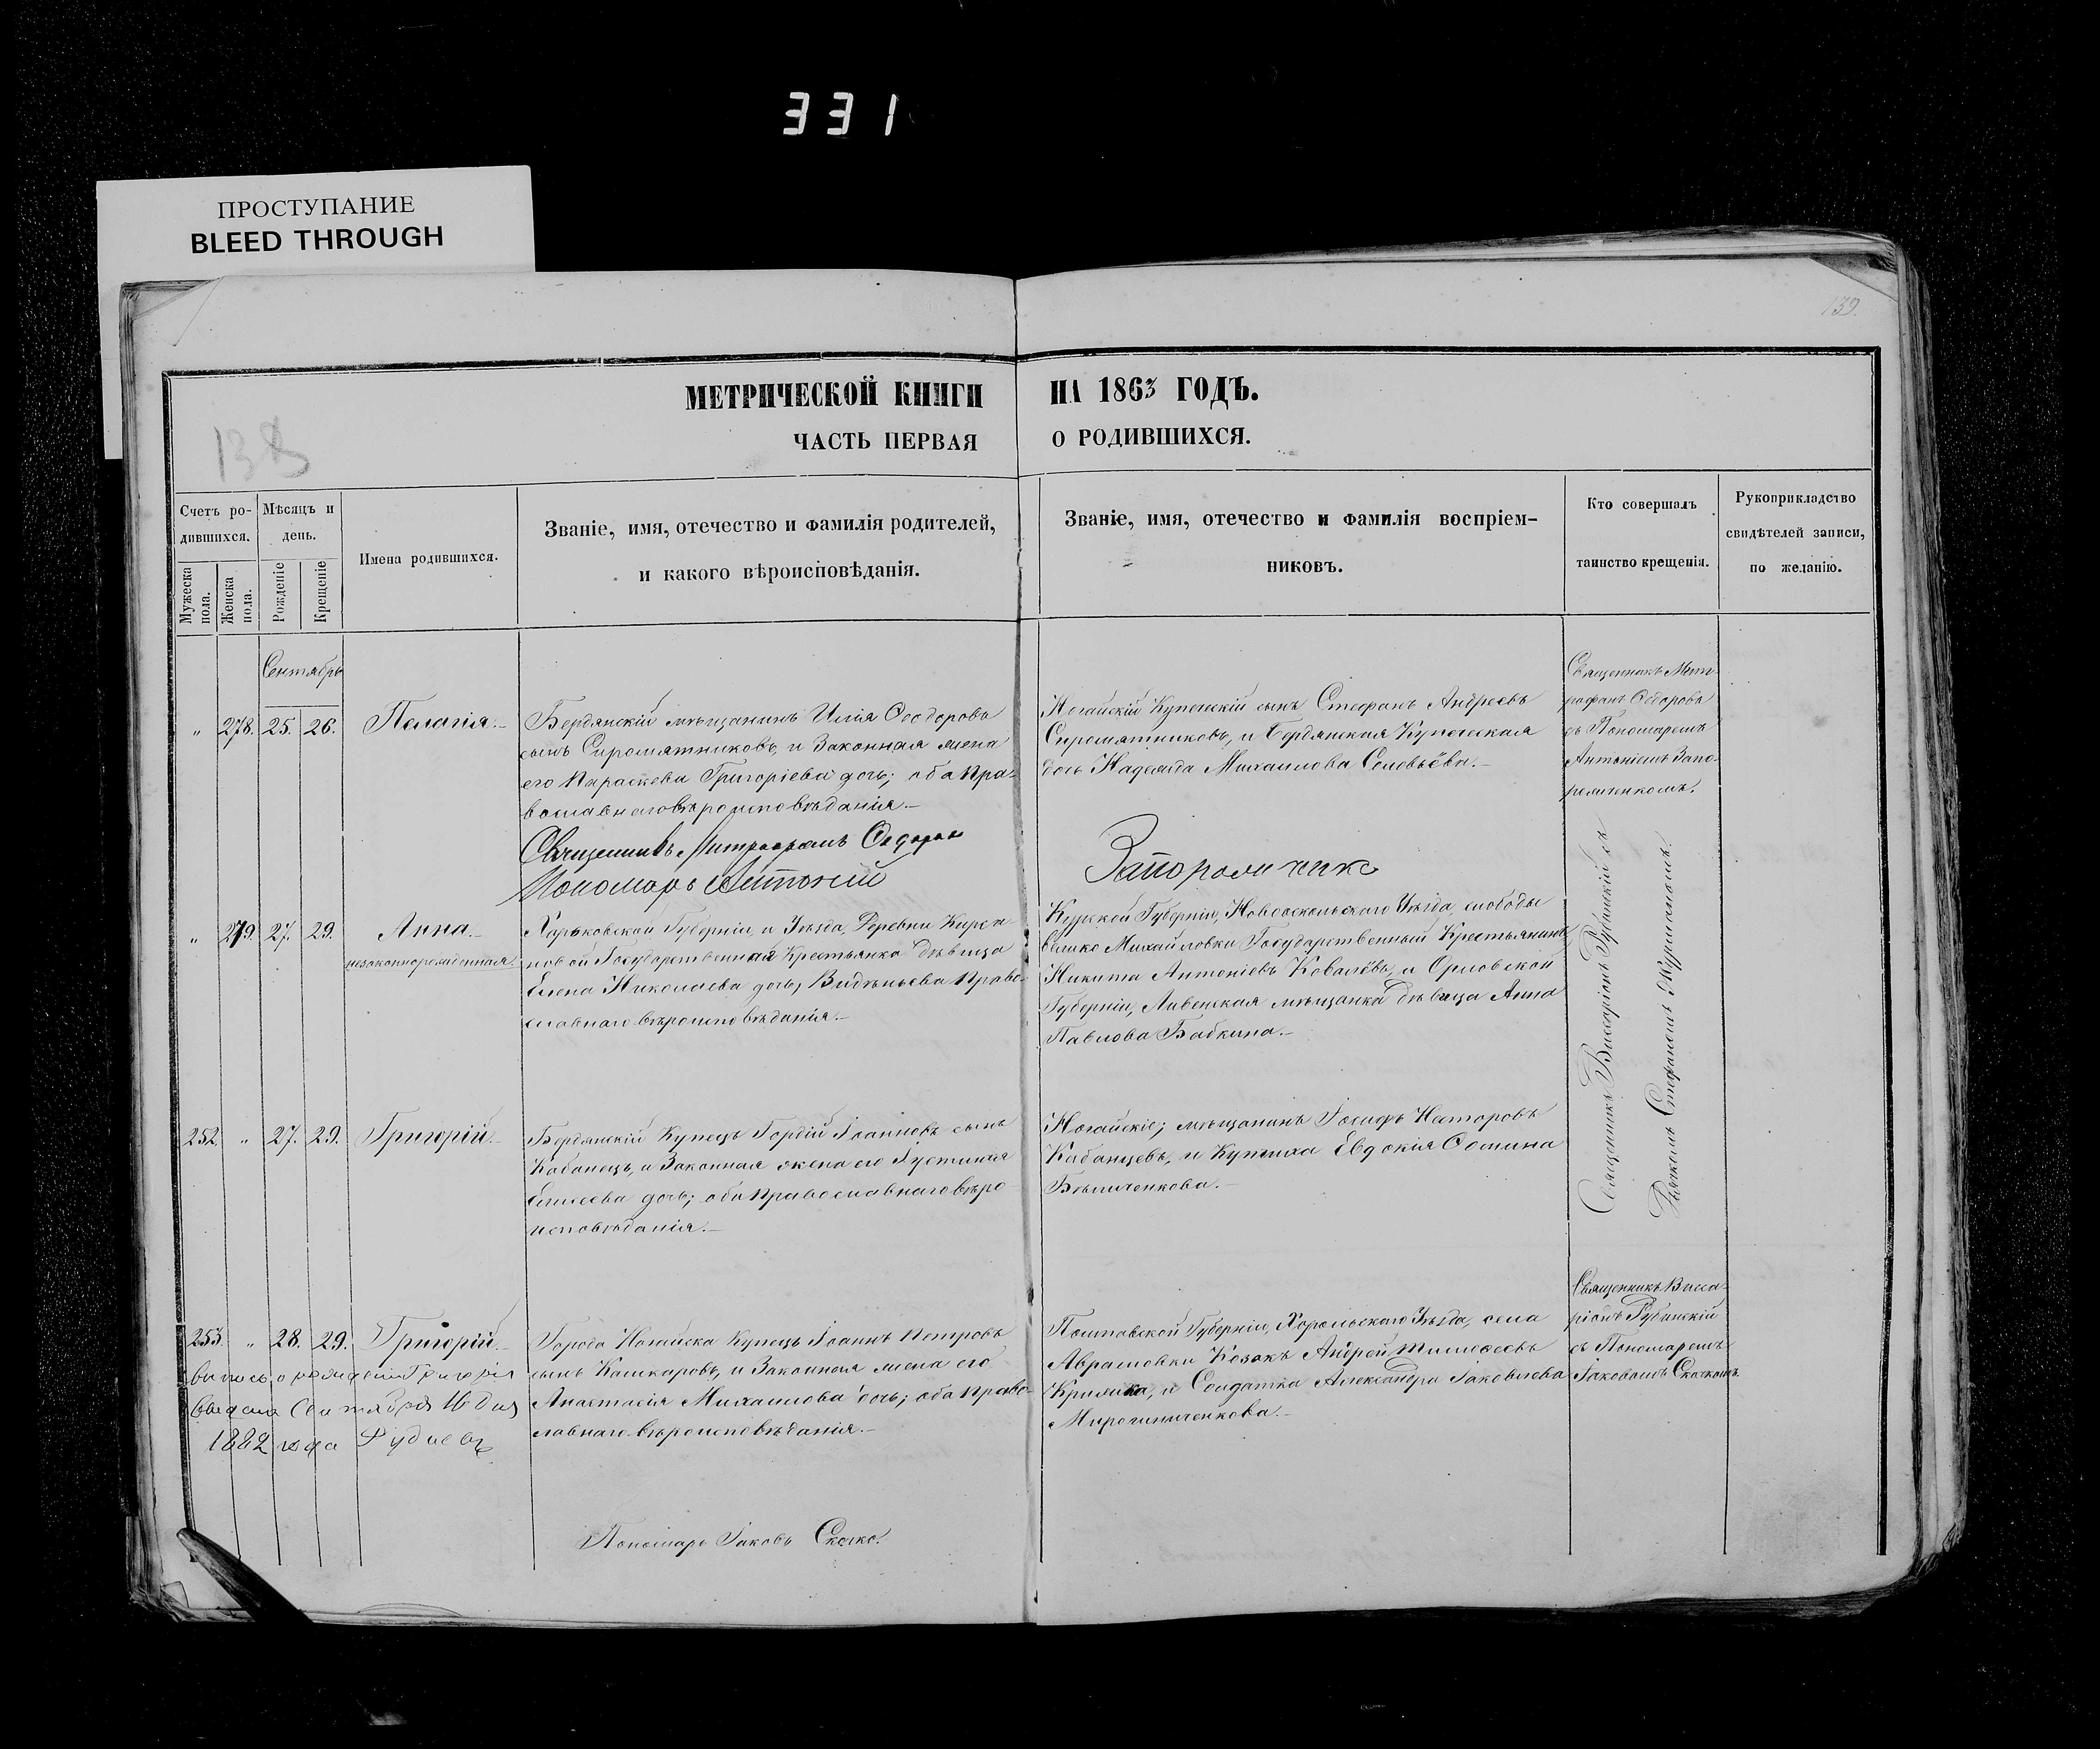 331
ПРОСТУПАНИЕ
BLEED THROUGH
139.
138
МЕТРИЧЕСКОЙ КНИГИ НА 1863 ГОДЪ.
ЧАСТЬ ПЕРВАЯ О РОДИВШИХСЯ.
Счетъ ро-
дившихся.
Мужеска
пола.
Женска
пола.
Мѣсяцъ и
день.
Рожденіе
Крещеніе
Имена родившихся.
Званіе, имя, отечество и фамилія родителей,
и какого вѣроисповѣданія.
Званіе, имя, отечество и фамилія воспріем-
никовъ.
Кто совершалъ
таинство крещенія.
Рукоприкладство
свидѣтелей записи,
по желанію.
Сентябрь
" 278. 25. 26. Пелагія.
Бердянскій мѣщанинъ Илія Ѳеодоровъ
сынъ Сыромятниковъ, и Законная жена
его Параскева Григоріева дочь; оба Пра-
вославнаго вѣроисповѣданія.
Ногайскій Купеческій сынъ Стефанъ Андреевъ
Сыромятниковъ, и Бердянская Купеческая
дочь Надежда Михаилова Соловьёва.
Священникъ Мит-
рофанъ Ѳедоровъ
съ Пономаремъ
Антоніемъ Запо-
рожченкомъ.
Священникъ Митрофанъ Ѳедоровъ
Пономарь Антоній Запорожченко
" 279. 27. 29. Анна.
незаконнорожденная.
Харьковской Губерніи и Уѣзда, Деревни Кирса-
новой Государственная Крестьянка Дѣвица
Елена Николаева дочь, Видѣньева Право-
славнаго вѣроисповѣданія.
Курской Губерніи, Новооскольскаго Уѣзда, слободы
Велико Михайловки Государственный Крестьянинъ
Никита Антоніевъ Ковалёвъ, и Орловской
Губерніи, Ливенская мѣщанка Дѣвица Анна
Павлова Бабкина.
Священникъ Виссаріонъ Рубанскій съ
Дьякомъ Стефаномъ
252 " 27. 29. Григорій.
Бердянскій Купецъ Гордій Іоанновъ сынъ
Кобанецъ, и Законная жена его Іустинія
Елисеева дочь; оба Православнаго вѣро-
исповѣданія.
Ногайскіе; мѣщанинъ Іосифъ Несторовъ
Кабанцевъ, и Купчиха Евдокія Ѳомина
Бѣличенкова.
253. " 28. 29. Григорій.
Города Ногайска Купецъ Іоаннъ Петровъ
сынъ Кашкаровъ, и Законная жена его
Анастасія Михаилова дочь; оба Право-
славнаго вѣроисповѣданія.
Полтавской Губерніи, Хорольскаго Уѣзда, села
Аврамовки Козакъ Андрей Тимоѳеевъ
Крижка, и Солдатка Александра Іаковлева
Мирошниченкова.
Священникъ Висса-
ріонъ Рубанскій
съ Пономаремъ
Іаковомъ Скочкомъ.
выпись о рожденіи Григорія
выдана Сентября 16 дня
1882 года
Пономарь Іаковъ Скочко.